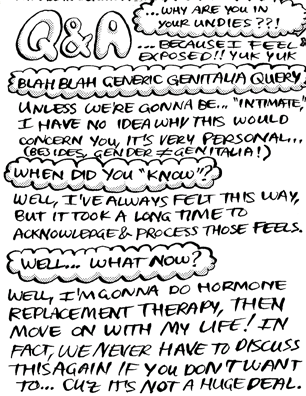 Q&A
...WHY ARE YOU IN
YOUR UNDIES??!
...BECAUSE I FEEL
EXPOSED!! YUK YUK
BLAH BLAH GENERIC GENITALIA QUERY
UNLESS WE'RE GONNA BE... "INTIMATE,"
I HAVE NO IDEA WHY THIS WOULD
CONCERN YOU, IT'S VERY PERSONAL...
(BESIDES, GENDER ≠ GENITALIA!)
WHEN DID YOU "KNOW"?
WELL, I'VE ALWAYS FELT THIS WAY,
BUT IT TOOK A LONG TIME TO
ACKNOWLEDGE & PROCESS THOSE FEELS.
WELL... WHAT NOW?
WELL, I'M GONNA DO HORMONE
REPLACEMENT THERAPY, THEN
MOVE ON WITH MY LIFE! IN
FACT, WE NEVER HAVE TO DISCUSS
THIS AGAIN IF YOU DON'T WANT
TO... CUZ IT'S NOT A HUGE DEAL.